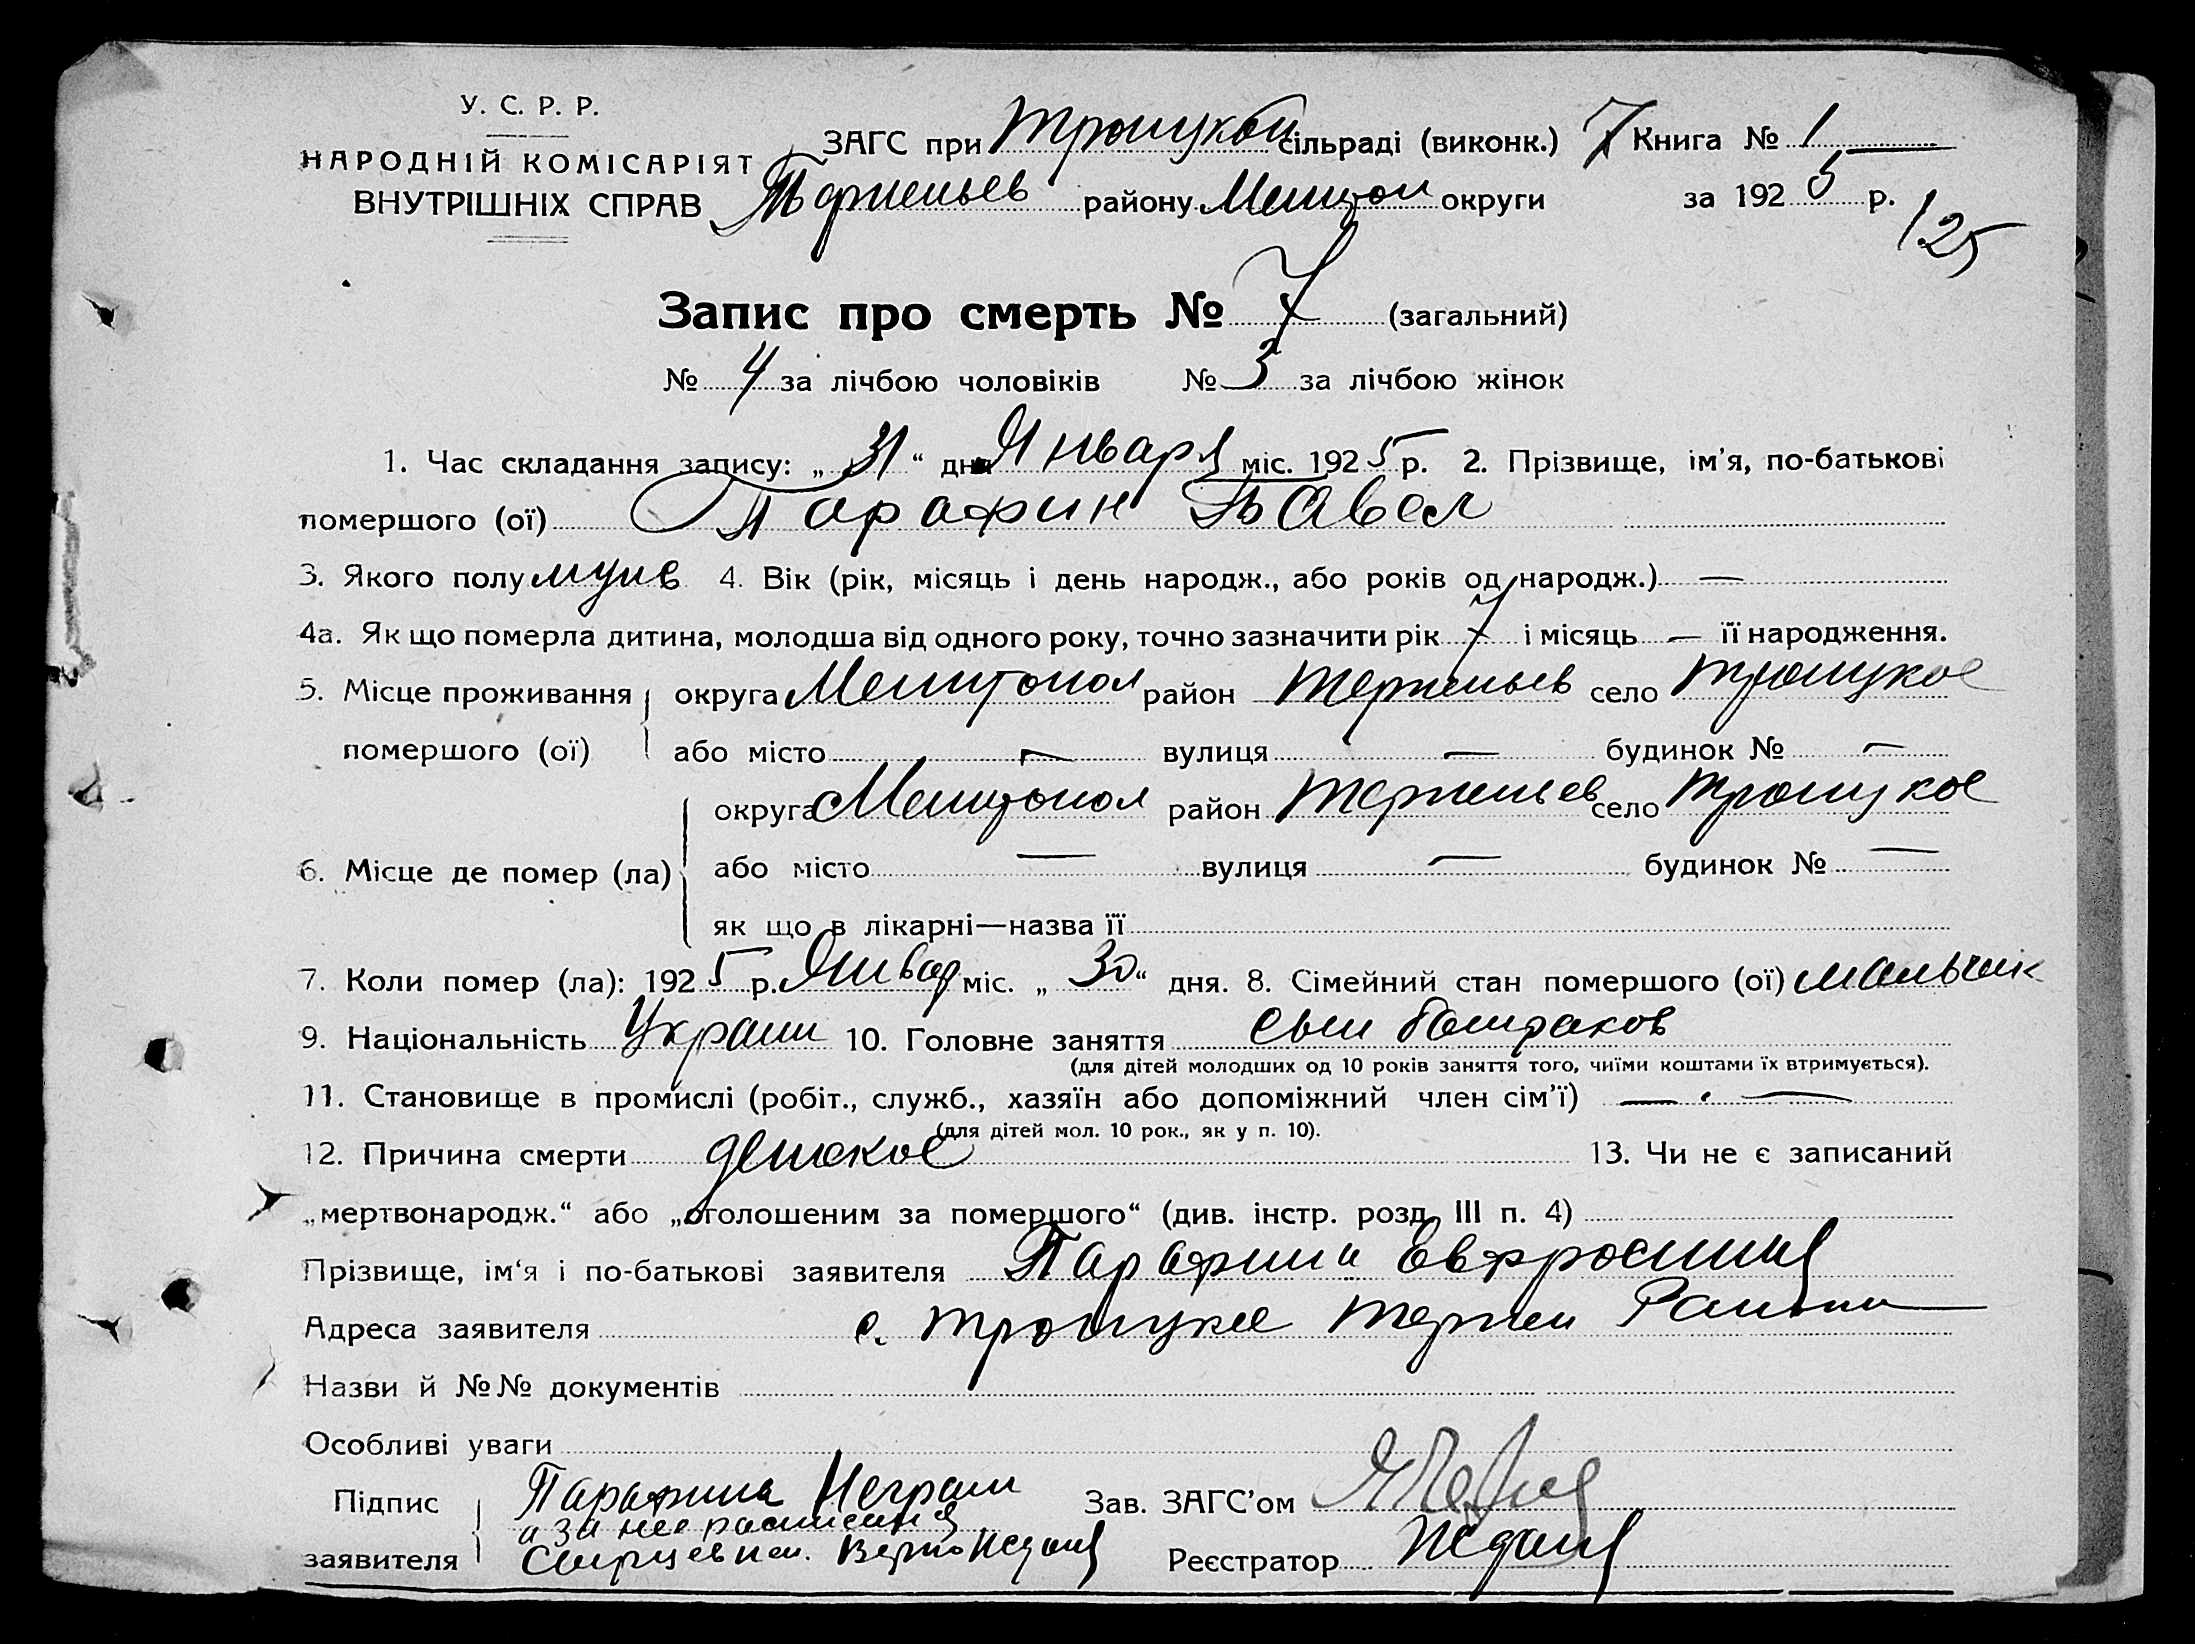 У. С. Р. Р.
НАРОДНІЙ КОМІСАРІЯТ
ВНУТРІШНІХ СПРАВ
ЗАГС при Троицкой сільраді (виконк.) 7 Книга № 1
Терпеньев району Мелитоп округи за 1925 р.
125
Запис про смерть № 7 (загальний)
№ 4 за лічбою чоловіків № 3 за лічбою жінок
1. Час складання запису: „ 31 “ дня Января міс. 1925 р. 2. Прізвище, ім'я, по-батькові
помершого (ої) Парафин Павел
3. Якого полу муже 4. Вік (рік, місяць і день народж., або років од народж.) —
4а. Як що померла дитина, молодша від одного року, точно зазначити рік 7 і місяць — її народження.
5. Місце проживання округа Мелитопол район Терпеньев село Троицкое
помершого (ої) або місто — вулиця — будинок № —
округа Мелитопол район Терпеньев село Троицкое
6. Місце де помер (ла) або місто — вулиця — будинок № —
як що в лікарні—назва її
7. Коли помер (ла): 1925 р. Январ міс. „ 30 “ дня. 8. Сімейний стан помершого (ої) мальчик
9. Національність Украин 10. Головне заняття сын батраков
(для дітей молодших од 10 років заняття того, чиїми коштами їх втримується).
11. Становище в промислі (робіт., служб., хазяїн або допоміжний член сім'ї) — . —
(для дітей мол. 10 рок., як у п. 10).
12. Причина смерти детское 13. Чи не є записаний
„мертвонародж.“ або „оголошеним за помершого“ (див. інстр. розд. III п. 4)
Прізвище, ім'я і по-батькові заявителя Парафина Евфросиния
Адреса заявителя с. Троицкое Терпен Района
Назви й №№ документів
Особливі уваги
Підпис Парафина Неграм Зав. ЗАГС'ом
а за нее расписался
заявителя Верно Реєстратор